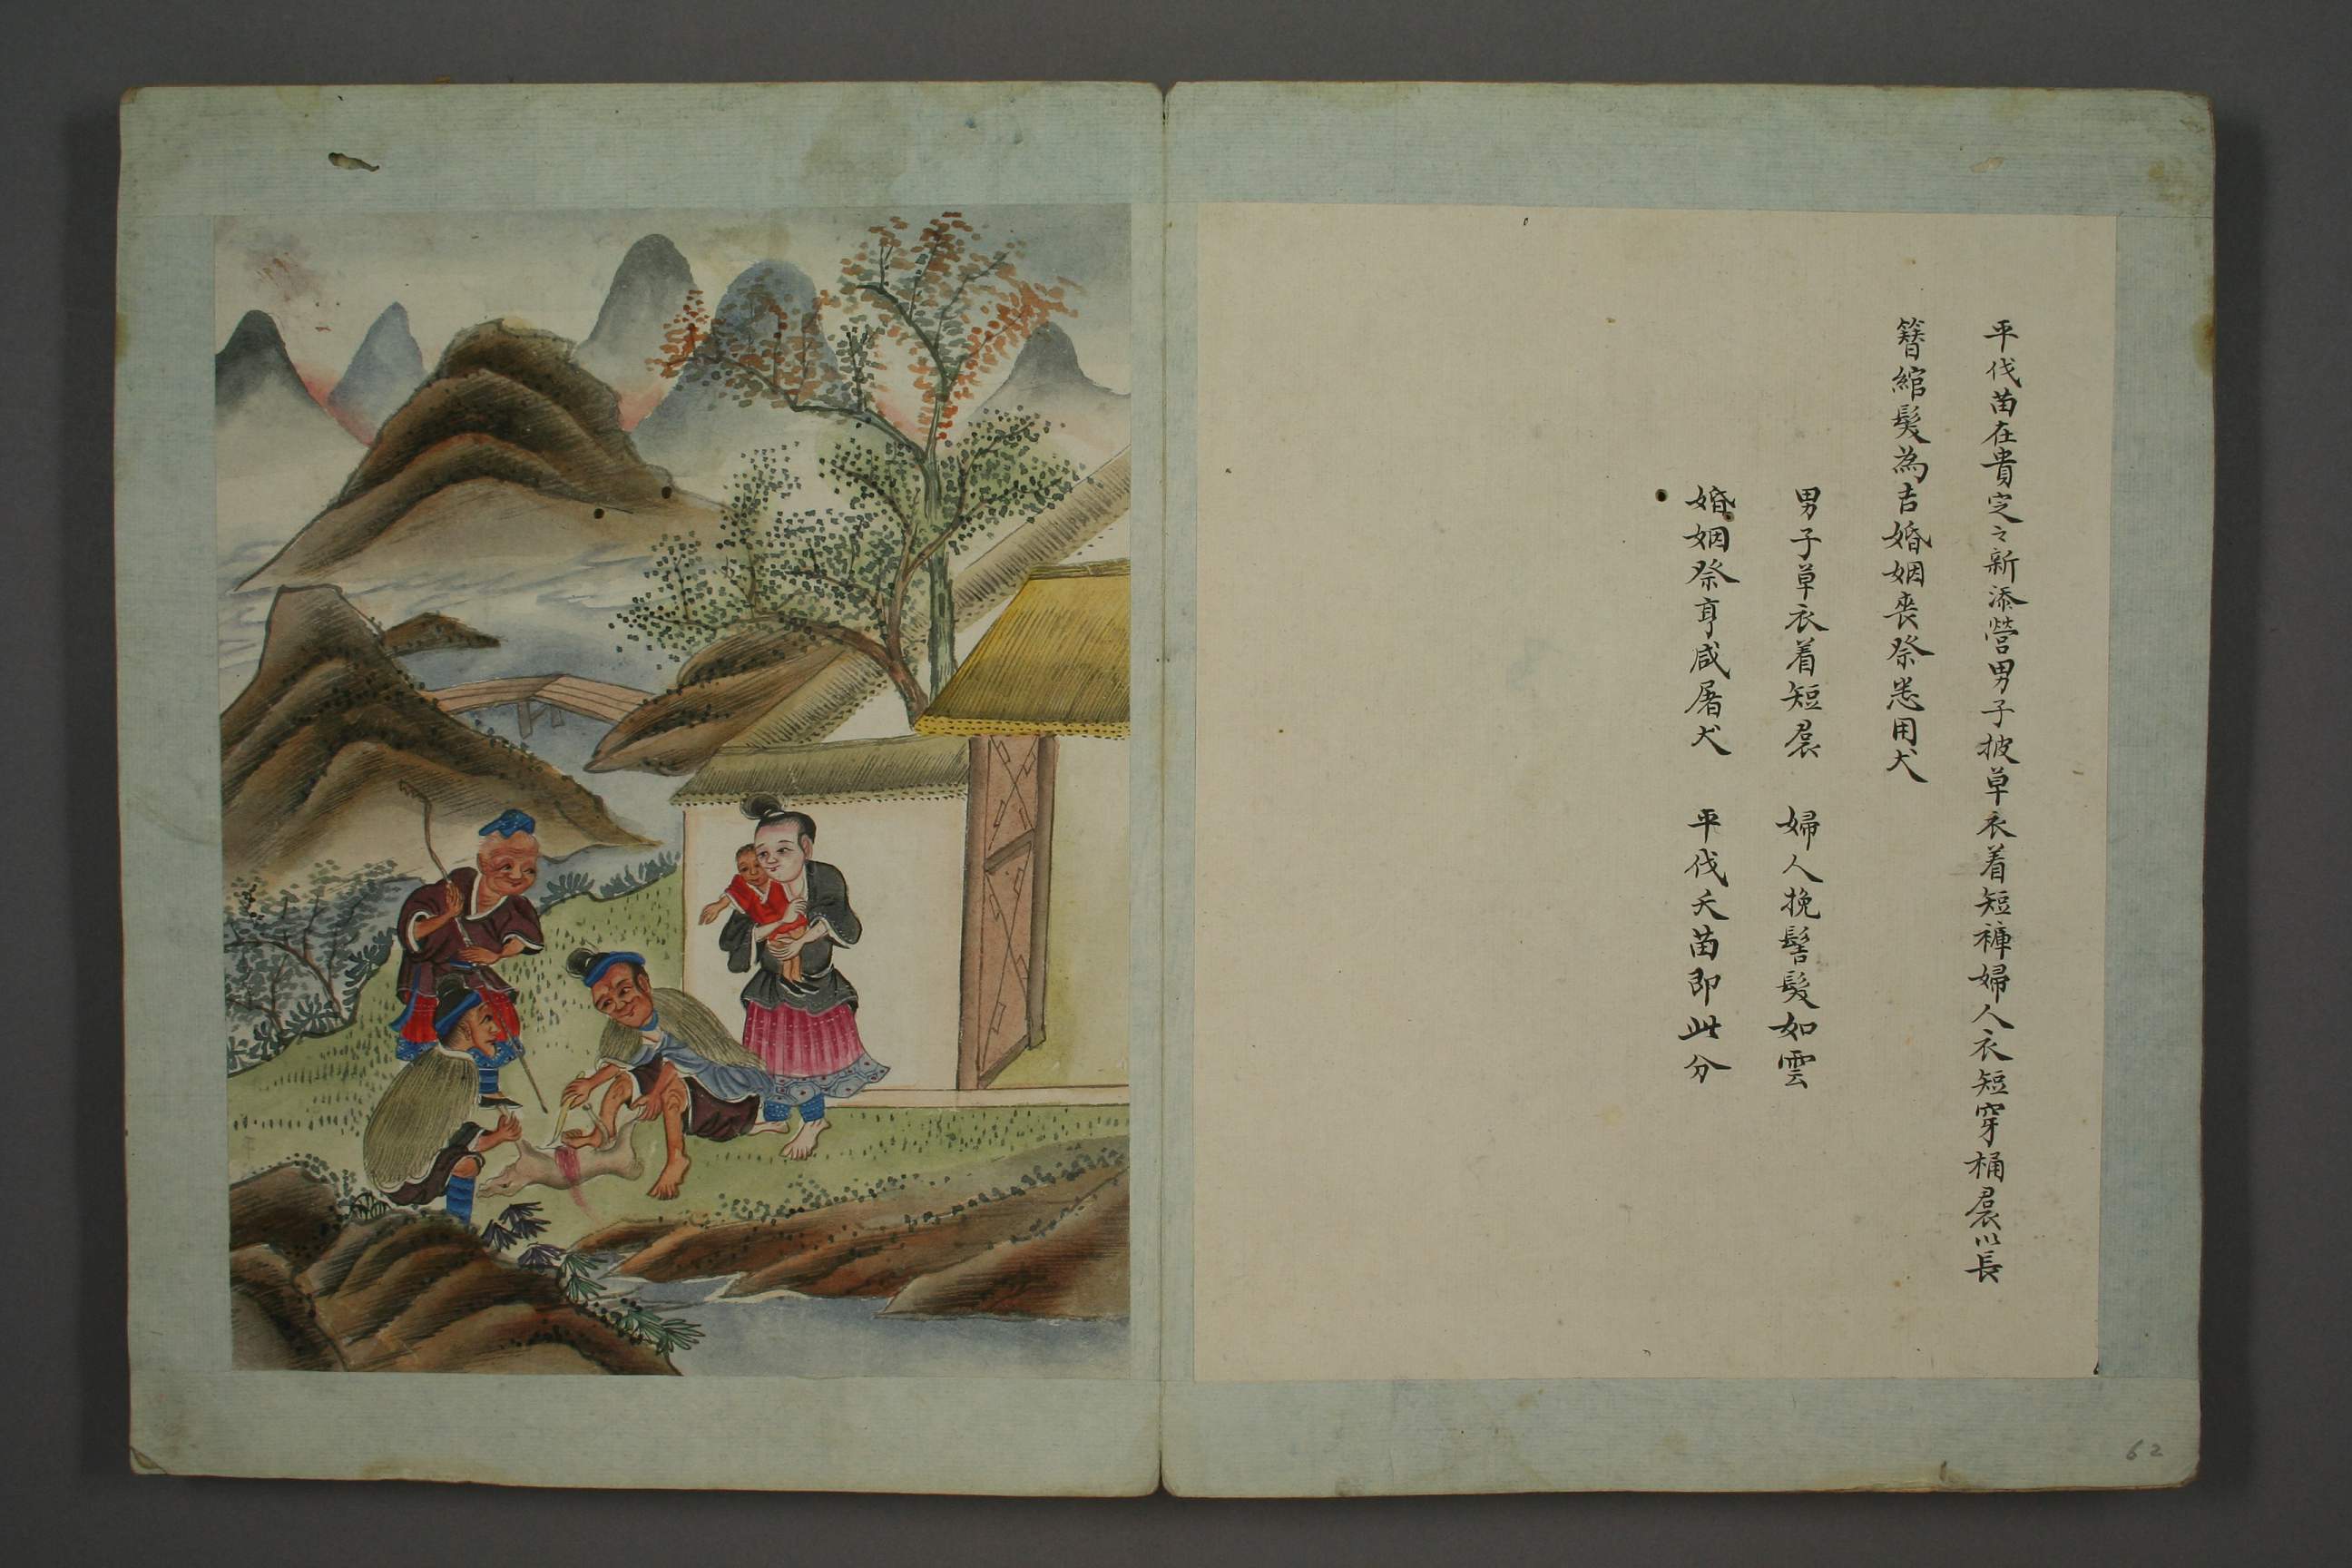 平伐苗在貴定之新添營男子披草衣着短褲婦人衣短穿桶裠以長
簪綰髮為吉婚姻喪祭悉用犬
男子草衣着短裠　婦人挽髻髮如雲
婚姻祭亨咸屠犬　平伐夭苗即此分
62